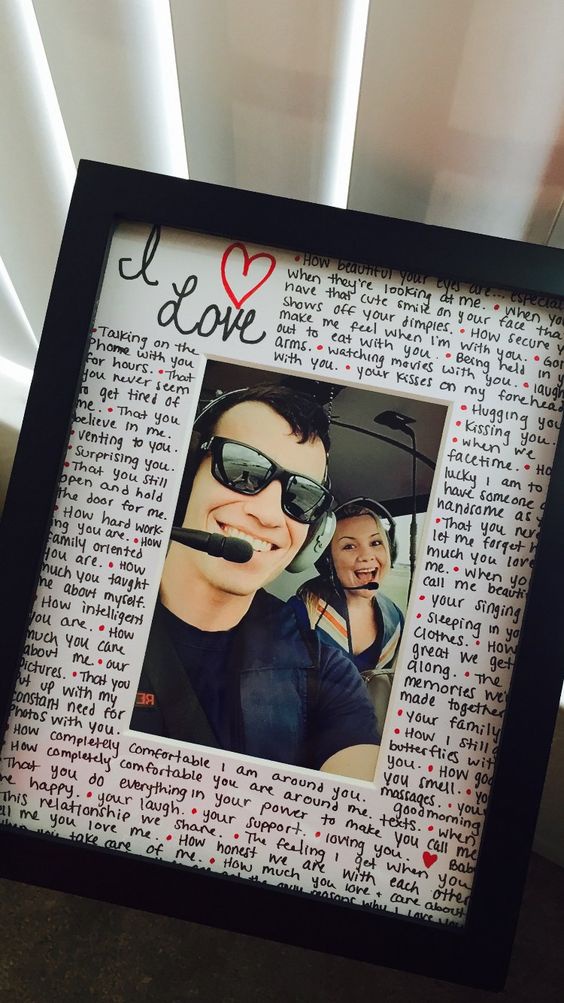 I
Love
• How beautiful your eyes are... especial
when they're looking at me. • When you
have that cute smile on your face tha
shows off your dimples. • How secure y
make me feel when I'm with you. • Goi
out to eat with you. • Being held in y
arms. • watching movies with you. • laugh
with you. • your kisses on my forehead
• Talking on the
phone with you
for hours. • That
you never seem
to get tired of
me. • That you
believe in me.
• venting to you.
• Surprising you.
• That you still
open and hold
the door for me.
• How hard work-
ing you are. • How
family oriented
you are. • How
much you taught
me about myself.
• How intelligent
you are. • How
much you care
about me • our
pictures. • That you
put up with my
constant need for
photos with you.
• Hugging you
• Kissing you.
• when we
facetime. • Ho
lucky I am to
have someone a
handsome as y
• That you nev
let me forget h
much you love
me. • when yo
call me beauti
• your singing
• sleeping in yo
clothes. • How
great we get
along. • The
memories we'
made together
• your family
• How still g
butterflies wit
you. • How goo
you smell. • Yo
massages. • you
goodmorning
texts. • when
you call me
Babe
How completely comfortable I am around you.
How completely comfortable you are around me.
That you do everything in your power to make
me happy. • your laugh. • your support. • loving you.
This relationship we share. • The feeling I get when you
ell me you love me. • How honest we are with each other
you take care of me. • How much you love + care about
the only reasons why I Love you